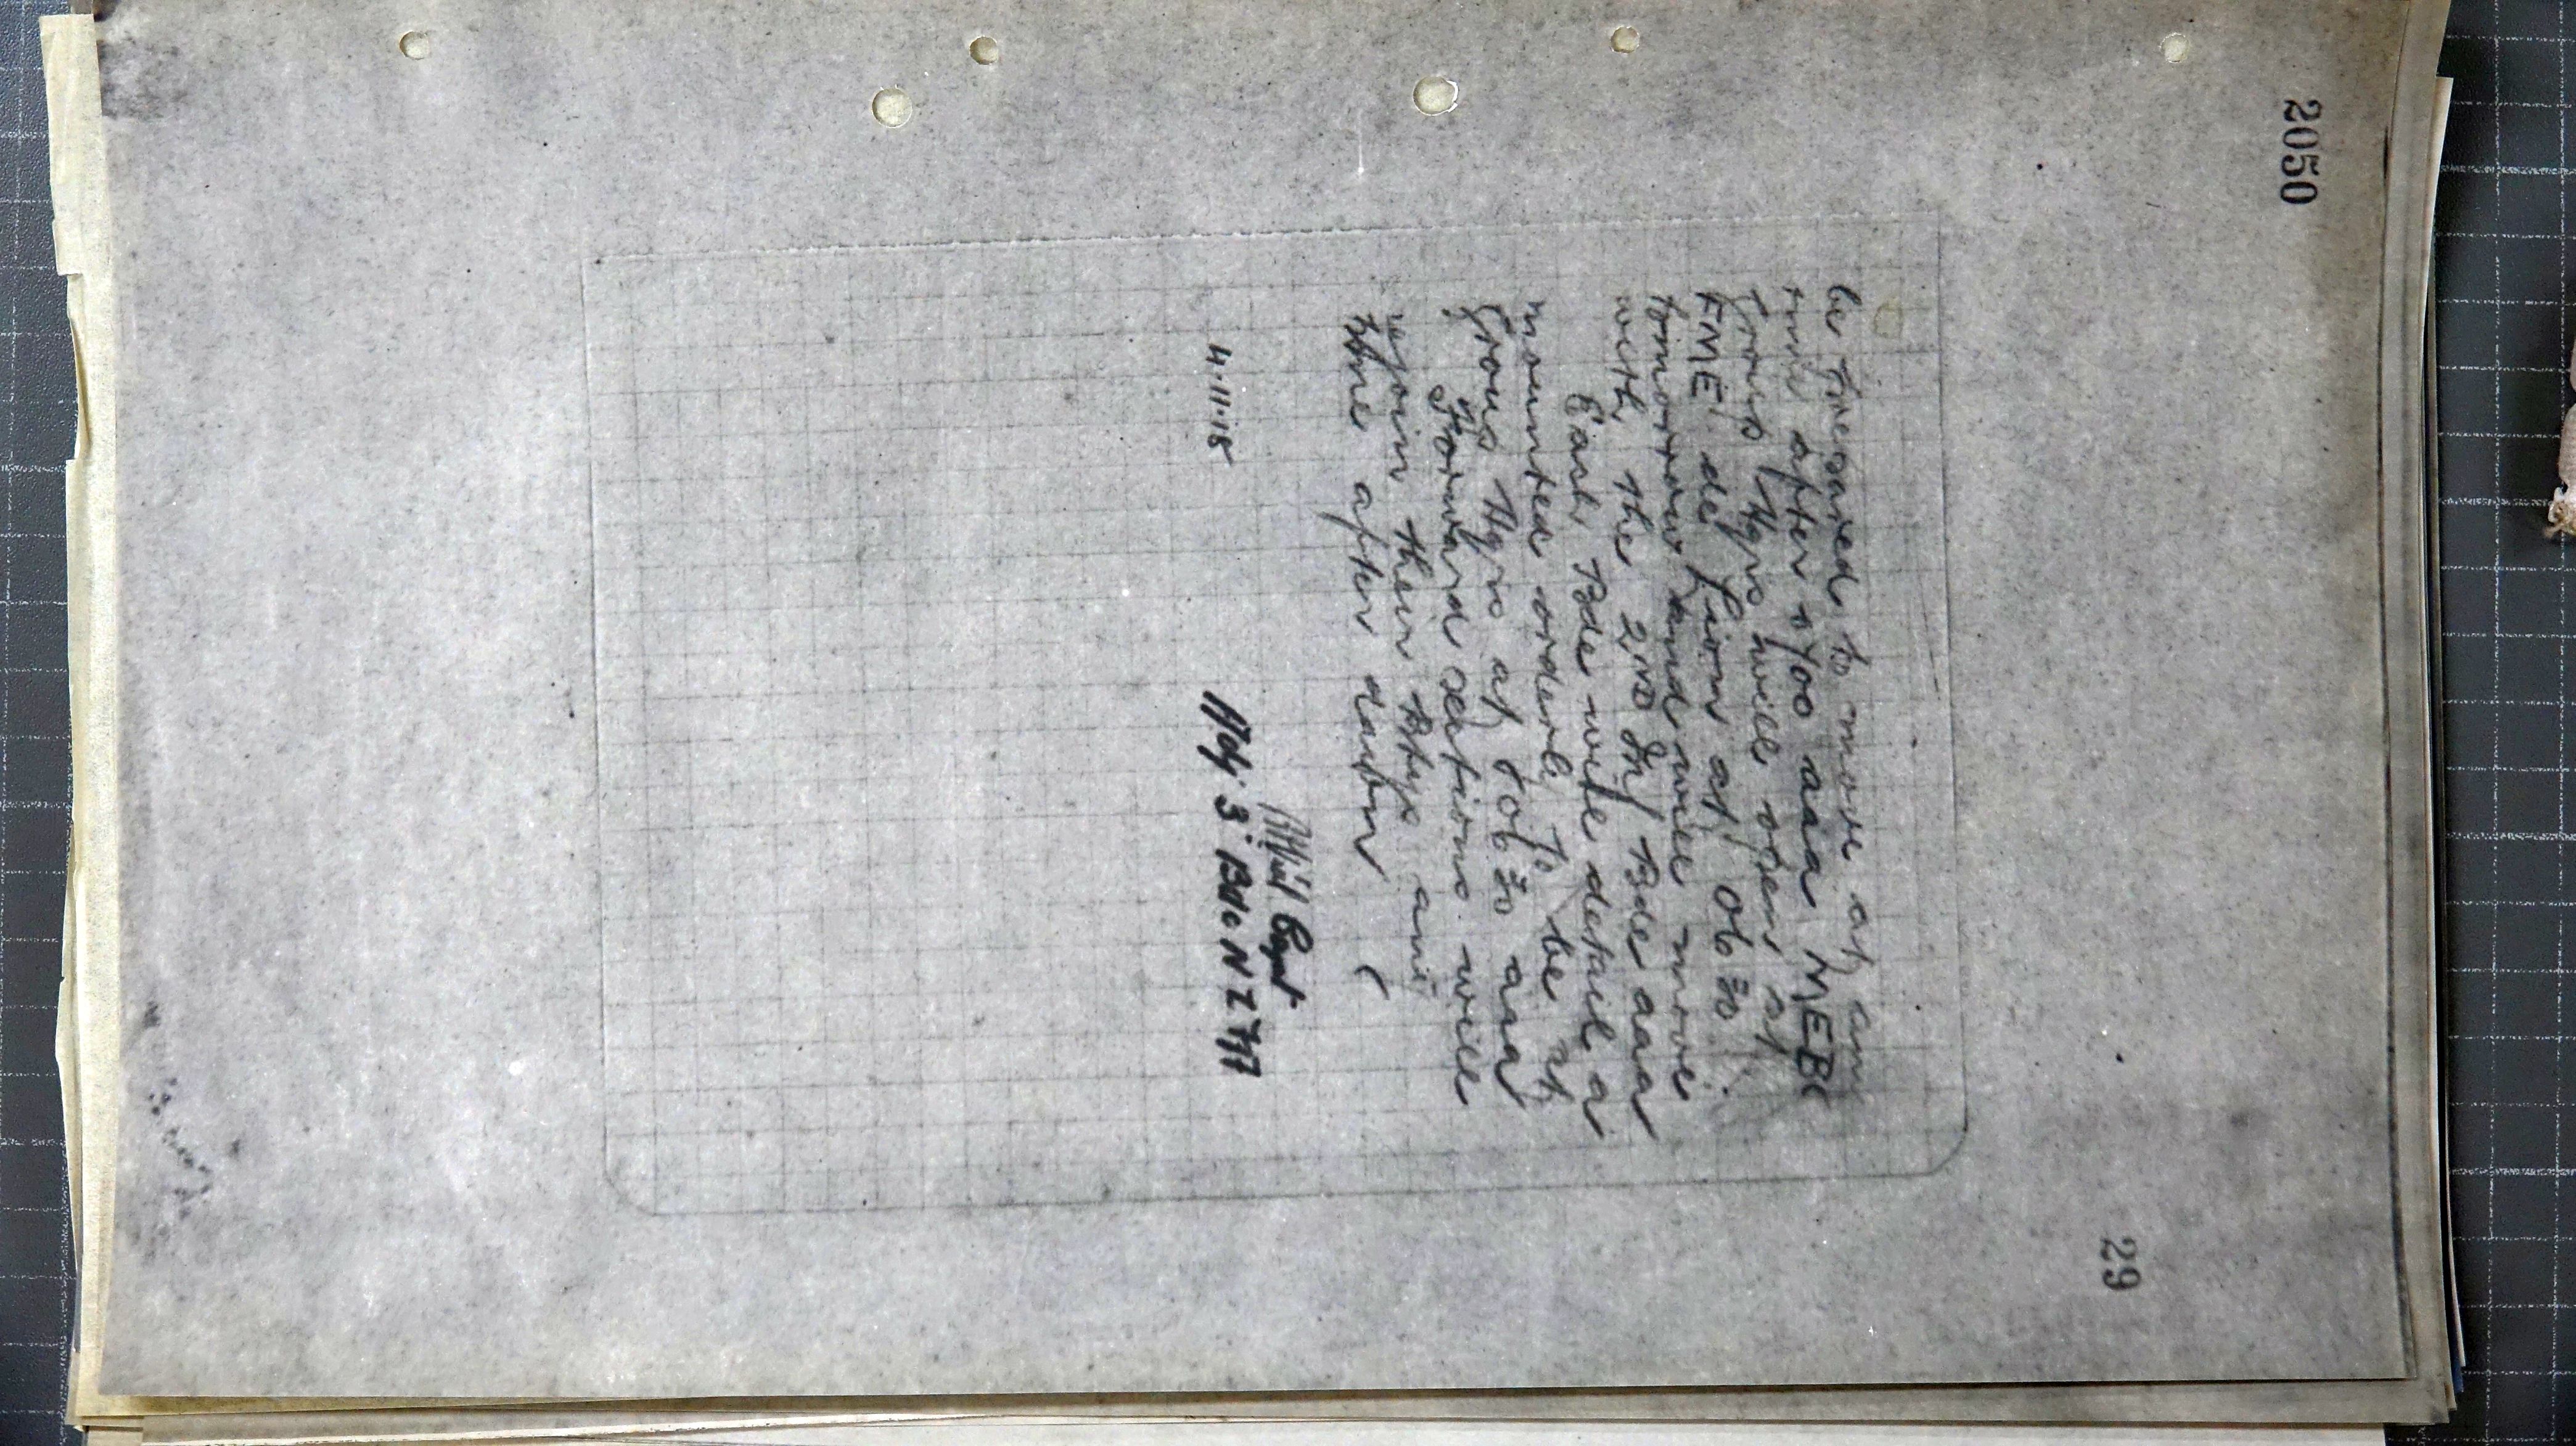 2050
29
be prepared to move at any
time after 0700 aaa MEBC
Group Hqrs will open at
FME de Lion at 06 30
tomorrow and will move
with the 2nd Inf Bde aaa
Each Bde will detail a
mounted orderly to be at
Group Hqrs at 06 30 aaa
Forward sections will
rejoin their Btys any
time after dawn
Capt
4.11.18 Adj. 3 Bde NZFA